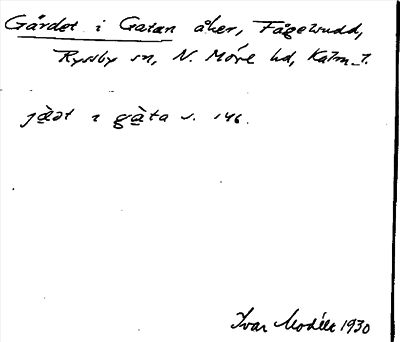 Gärdet i Gatan åker, Fågelsudd,
Ryssby sn, N. Möre hd, Kalm. l.
jä̀ət ɩ gàta s. 146.
Ivar Modéer 1930